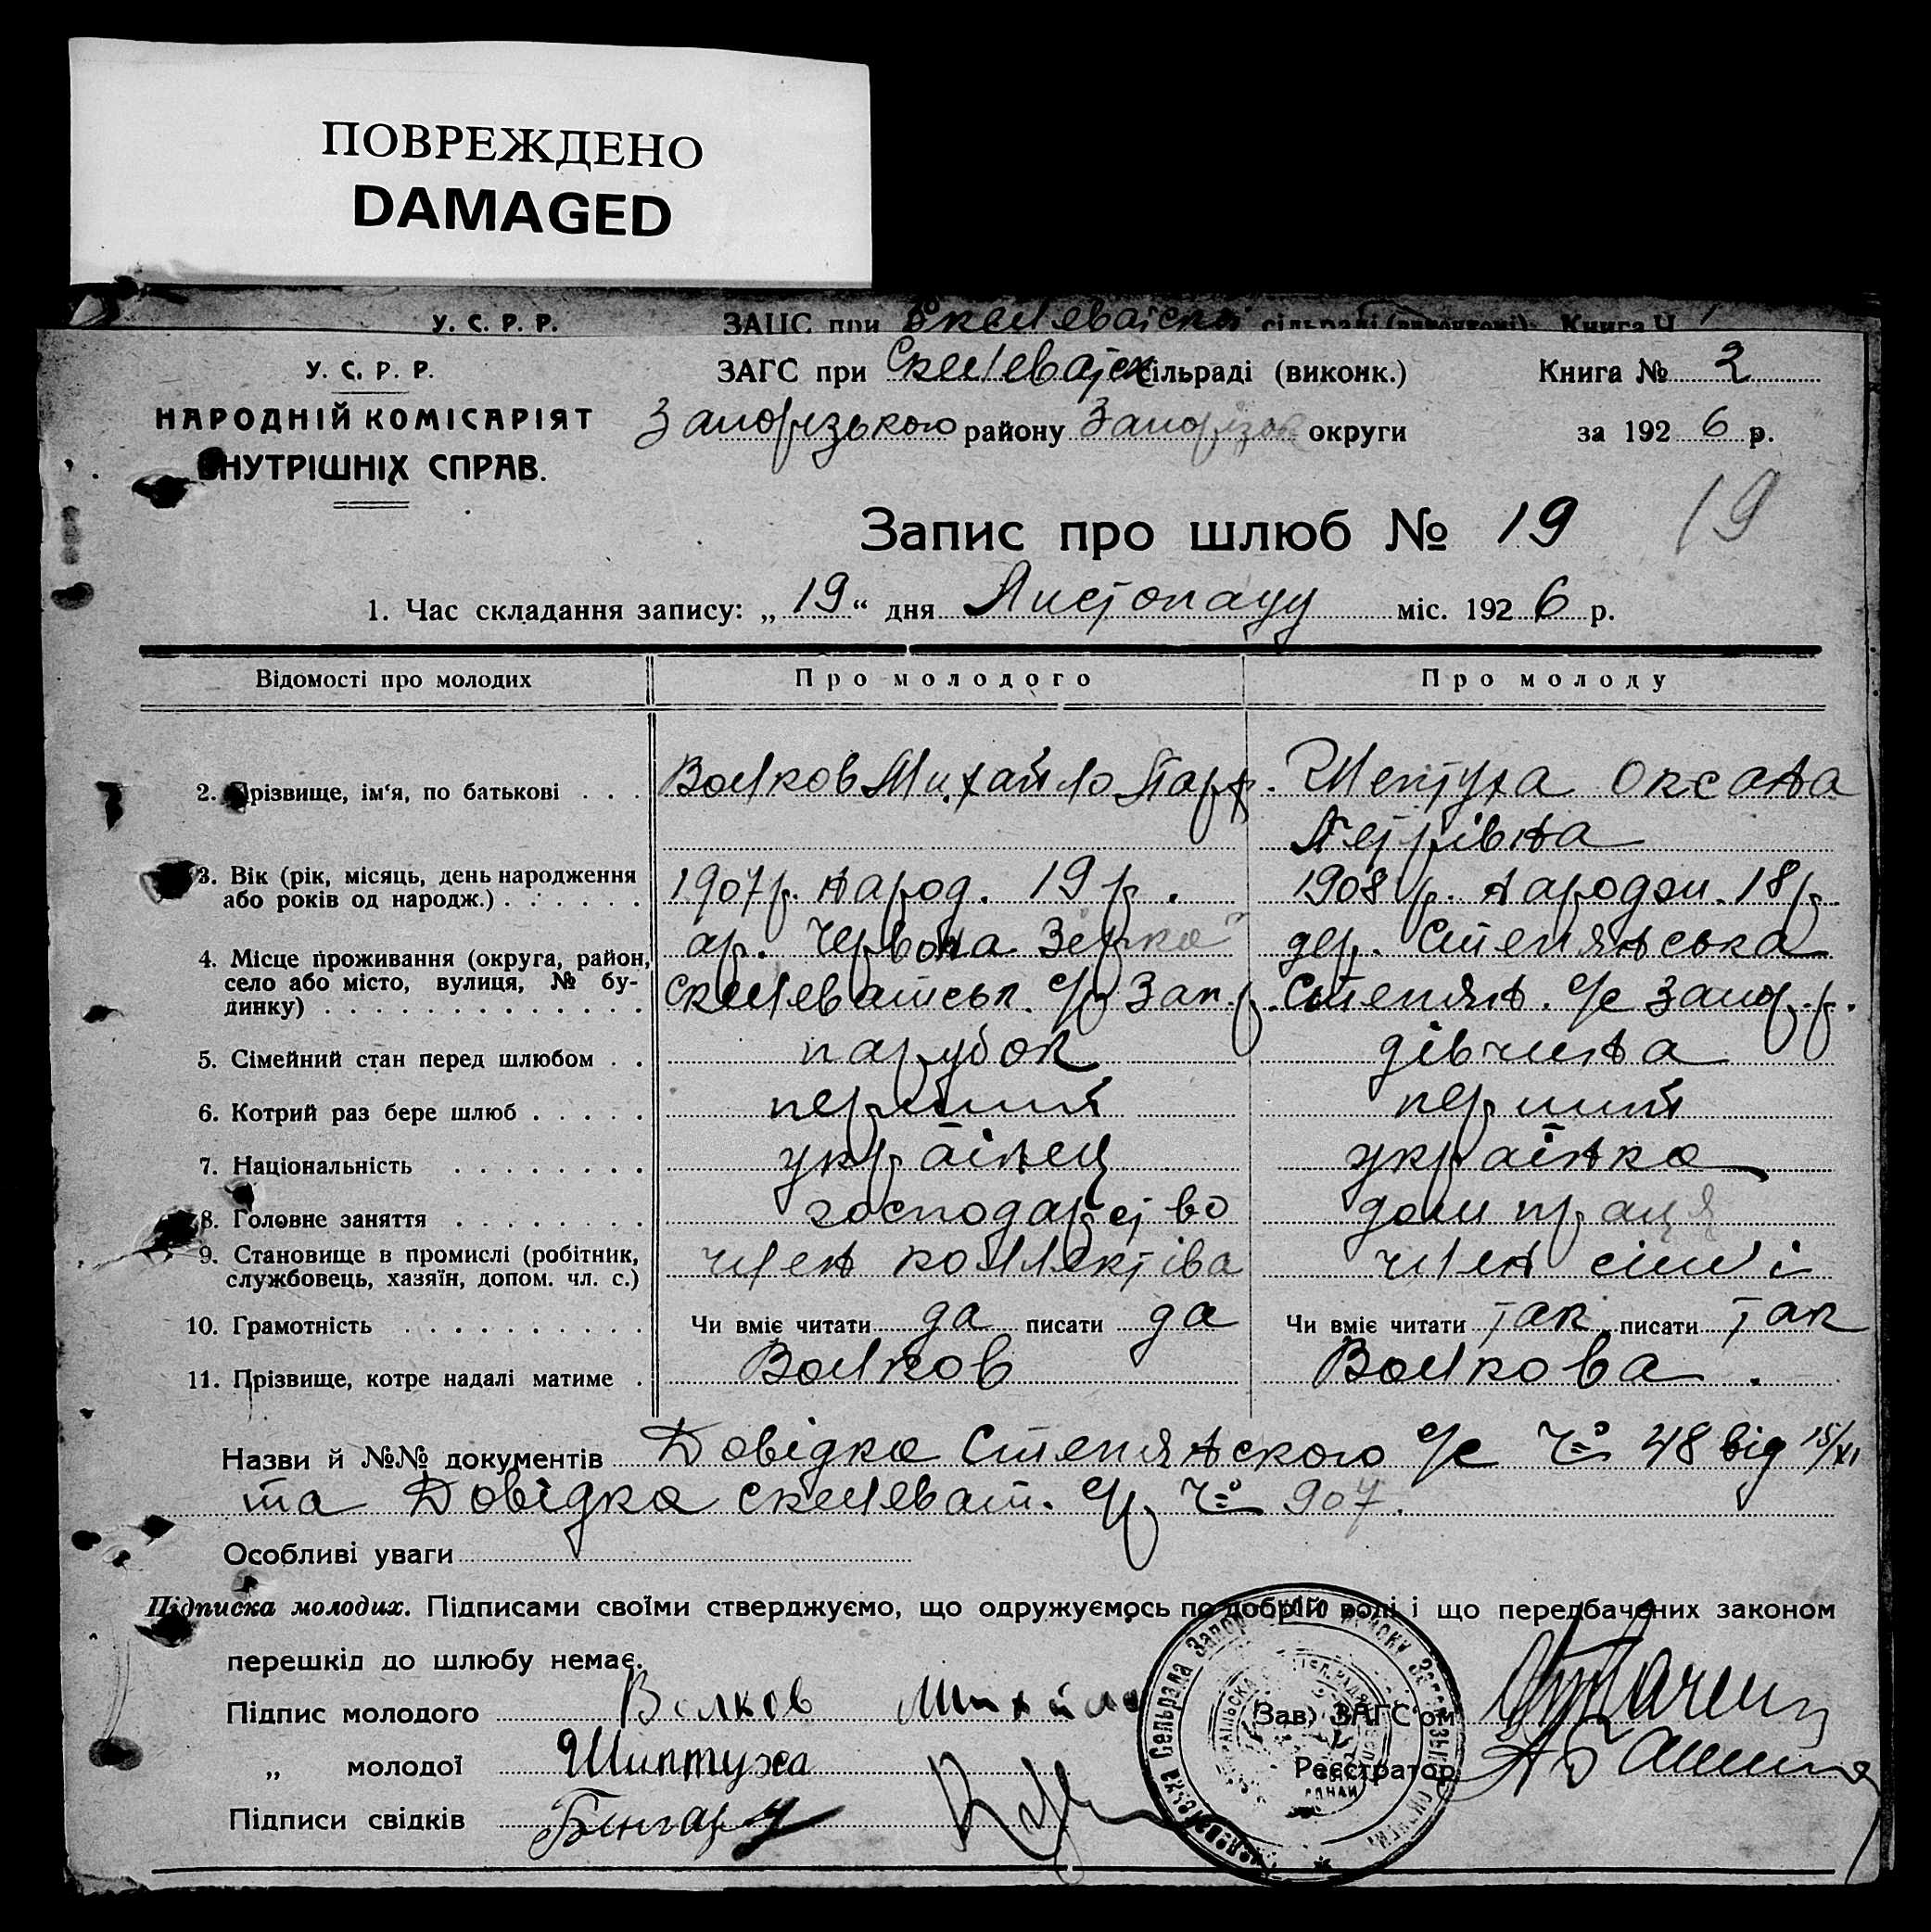 ПОВРЕЖДЕНО
DAMAGED
У. С. Р. Р. ЗАЦС при сільраді (виконкомі) Книга Ч
У. С. Р. Р. ЗАГС при Скелеватск сільраді (виконк.) Книга № 2
НАРОДНІЙ КОМІСАРІЯТ Запорізького району Запорізьк округи за 1926 р.
ВНУТРІШНІХ СПРАВ.
Запис про шлюб № 19 19
1. Час складання запису: „19“ дня Листопаду міс. 1926 р.
Відомості про молодих Про молодого Про молоду
2. Прізвище, ім'я, по батькові . . . Волков Михайло Парф. Шептуха Оксана
Петрівна
3. Вік (рік, місяць, день народження
або років од народж.) . . . . . . 1907 р. народ. 19 р. 1908 р. народж. 18 р.
4. Місце проживання (округа, район, ар. Червона Зерка дер. Степнянська
село або місто, вулиця, № бу-
динку) . . . . . . . . . . . . . Скелеватськ. с/р Зап. р. Степнян. с/с Запор. р.
5. Сімейний стан перед шлюбом . . парубок дівчина
6. Котрий раз бере шлюб . . . . . перший перший
7. Національність . . . . . . . . українец українка
8. Головне заняття . . . . . . . . господарство дом праця
9. Становище в промислі (робітник,
службовець, хазяїн, допом. чл. с.) член коллектіва член сімʼі
10. Грамотність . . . . . . . . . Чи вміє читати да писати да Чи вміє читати так писати так
11. Прізвище, котре надалі матиме . Волков Волкова.
Назви й №№ документів Довідка Степнянского с/с Ч= 48 від 15/XI
та Довідка скелеват. с/р Ч= 907.
Особливі уваги
Підписка молодих. Підписами своїми стверджуємо, що одружуємось по добрій волі і що передбачених законом
перешкід до шлюбу немає.
Підпис молодого Волков Михайло Зав) ЗАГС'ом
„ молодої Шиптуха Реєстратор
Підписи свідків